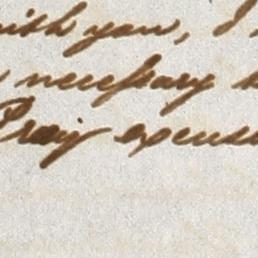 with you, I
necessary
Pray excuse